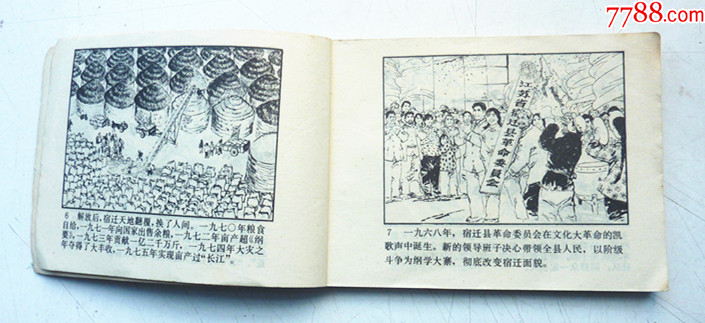 7788.com
6 解放后，宿迁天地翻覆，换了人间。一九七〇年粮食
自给，一九七一年向国家出售余粮，一九七二年亩产超《纲
要》，一九七三年贡献一亿二千万斤，一九七四年大灾之
年夺得了大丰收，一九七五年实现亩产过“长江”。
江苏省宿迁县革命委员会
7 一九六八年，宿迁县革命委员会在文化大革命的凯
歌声中诞生。新的领导班子决心带领全县人民，以阶级
斗争为纲学大寨，彻底改变宿迁面貌。